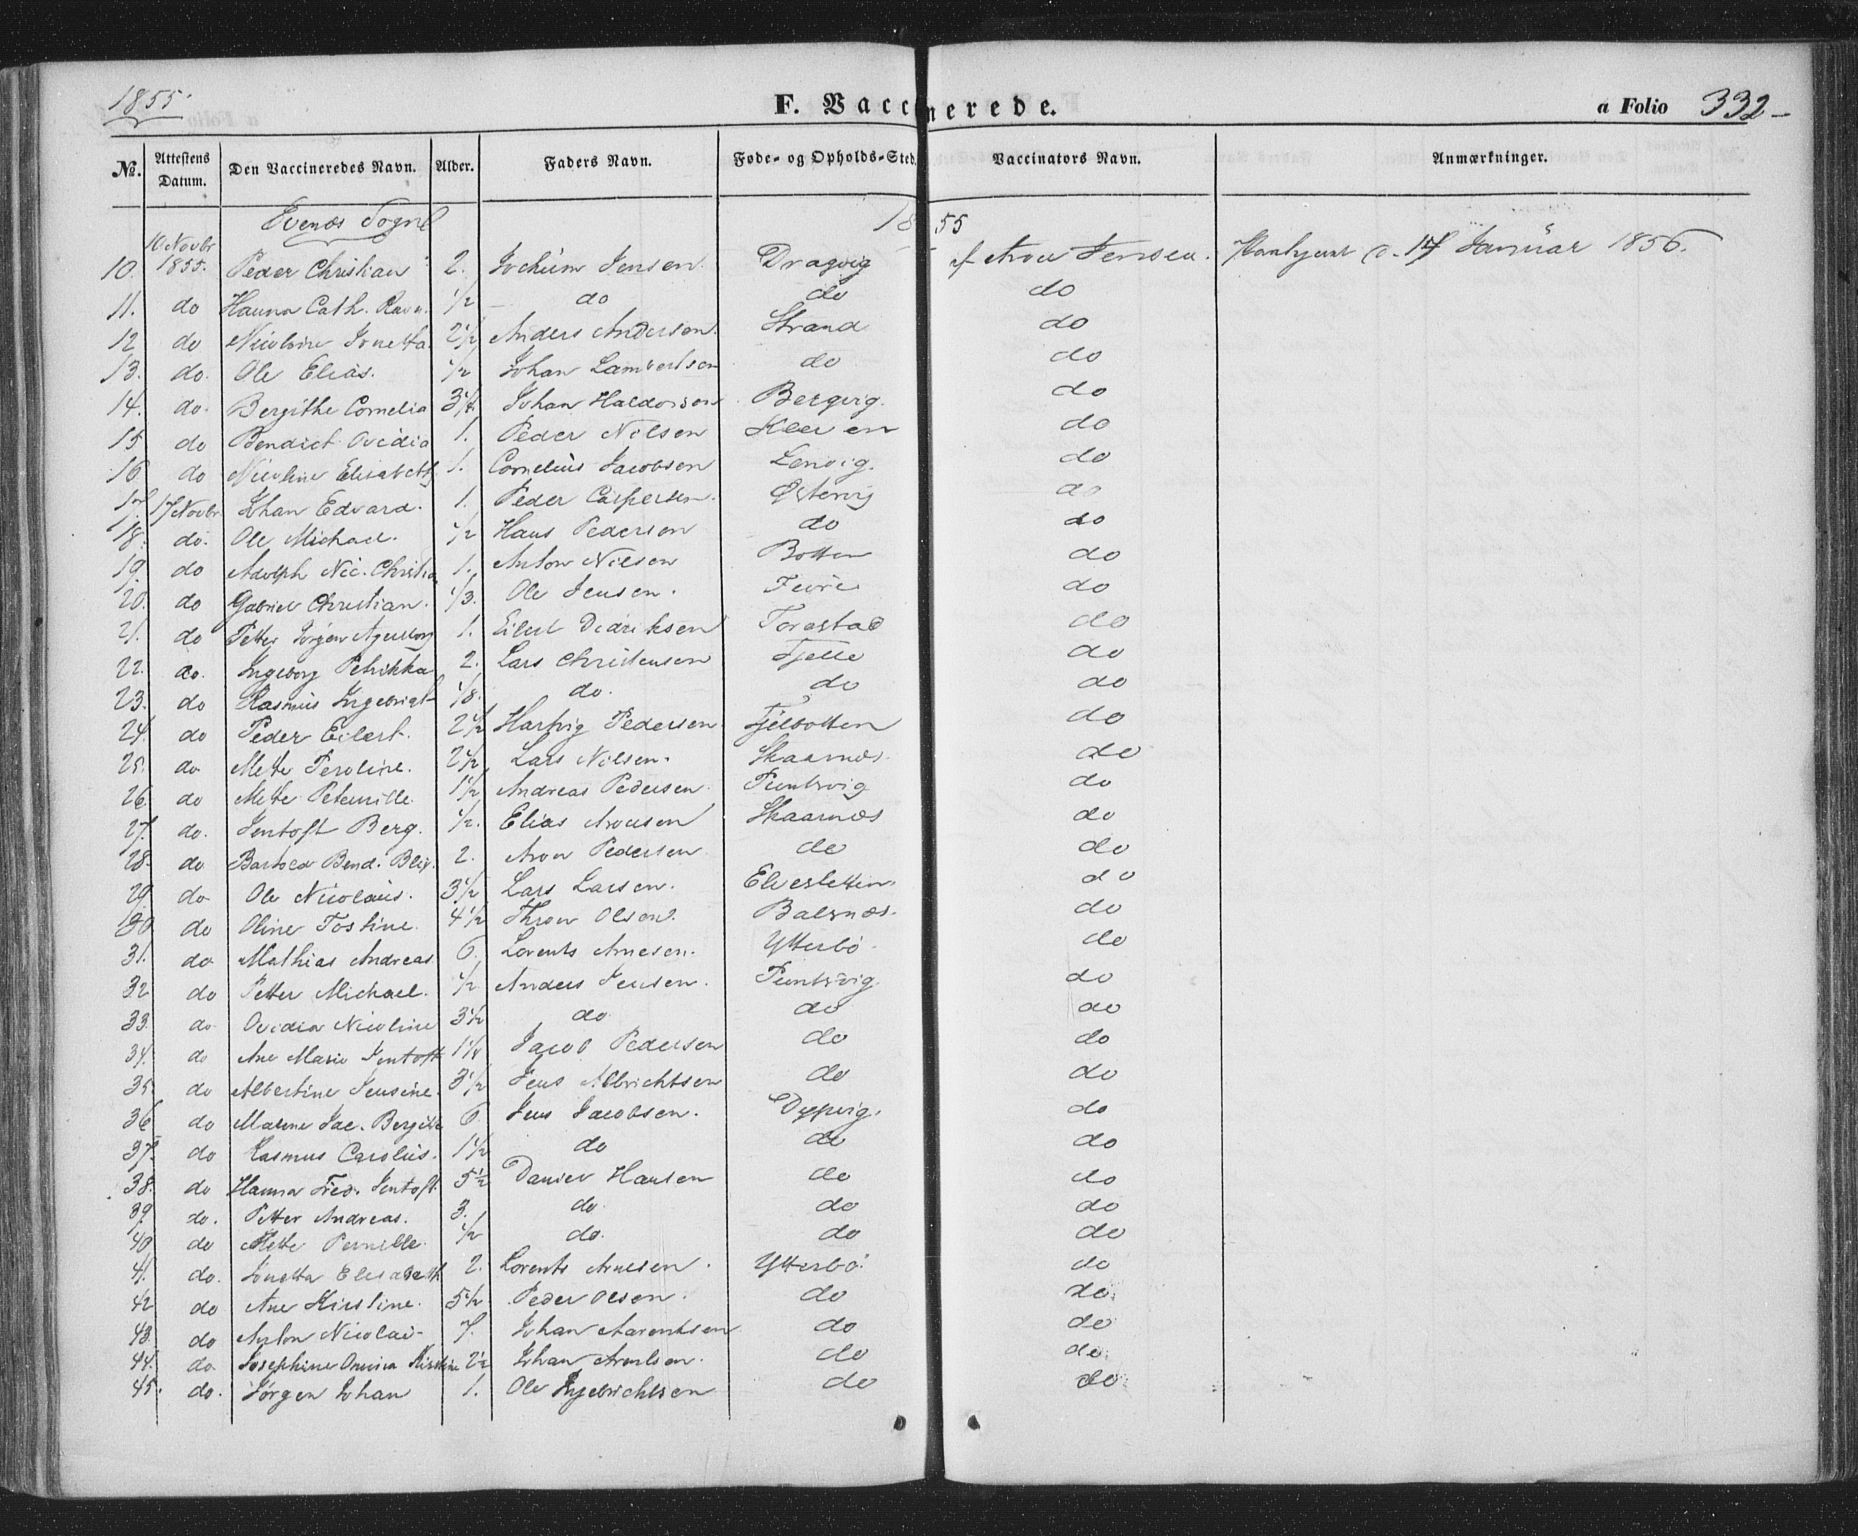 1855. F. Vaccinerede. a Folio 332
No. Attestens Datum. Den Vaccineredes Navn. Alder. Faders Navn. Føde- og Opholds-Sted. Vaccinators Navn. Anmærkninger.
Evenæs Sogn 1855
10. 10 Novbr 1855. Peder Christian 2. Jochum Jensen. Dragvig af Aron Jensen. d. 14 Januar 1856.
11. do Hanna Cath. Ravn. 1/2 do do do
12 do Nicoline Jonetta. 2 1/2 Anders Andersen. Strand do
13. do. Ole Elias. 1/2 Johan Lambertsen do do
14. do. Bergithe Cornelia Johan Haldorsen Bergvig. do
15 do Bendict Ovidia 1. Peder Nilsen do
16 do Nicoline Elisabeth 1. Cornelius Jacobsen Lenvig. do
17. 17 Novbr Johan Edvard. 1. Peder Caspersen. Østervig do
18. do. Ole Michael. 1/2 Hans Pedersen do do
19 do Adolph Nic. Christian 1. Anton Nilsen Botten do
20. do Gabriel Christian. 1/3. Ole Jensen. do
21. do Petter Jørgen 1. Eilert Didriksen Forastad do
22. do. Ingeborg Petrikka 2. Lars Christensen Fjelle do
23. do Rasmus Ingebrigt 1/8. do. do do
24. do Peder Eilert. 2 1/2 Hartvig Pedersen. Fjelbotten do
25. do Mette Peroline. 2 1/2 Lars Nilsen. Skaarnæs. do
26. do Mette Peternille 1 1/2 Andreas Pedersen. Puntsvig do
27. do. Jentoft Berg. 1/2. Elias Aronsen Skaarnæs do
28. do Bartold Bend. Blix. 2. Aron Pedersen do do
29. do Ole Nicolaus. 3 1/2 Lars Larsen. Elvesletten. do
30 do Oline Tostine. 4 1/2 Thron Olsen. Balsnæs. do
31. do Mathias Andreas 6. Lorents Arnesen. Ytterbö. do
32 do Petter Michael. 1/2 Anders Jensen. Puntsvig. do
33. do Ovidia Nicoline 3 1/2 do do do
34. do Ane Marie Jentoft Jacob Pedersen do do
35. do Albertine Jensine. 3 1/2 Jens Albrichtsen do do
36 do Marine Jac. Bergitte 6 Jens Jacobsen. Dypvig. do
37. do Rasmus Carolus. 1 1/2 do do do
38. do Hanna Fred. Jentoft. 5 1/2 Daniel Hansen do do
39. do. Petter Andreas. 3. do. do do
40 do Mette Pernille. 1/2 do. do do
41. do. Jonetta Elisabeth 2. Lorents Arnesen. Ytterbö. do
42 do Ane Kirstine. 5 1/2 Peder Olsen. do do
43. do Anton Nicolai 7. Johan Aarentsen do do
44. do Josephine Kirstine 2 1/2 Johan do do
45. do. Jörgen Johan 1. Ole Ingebrichtsen do do